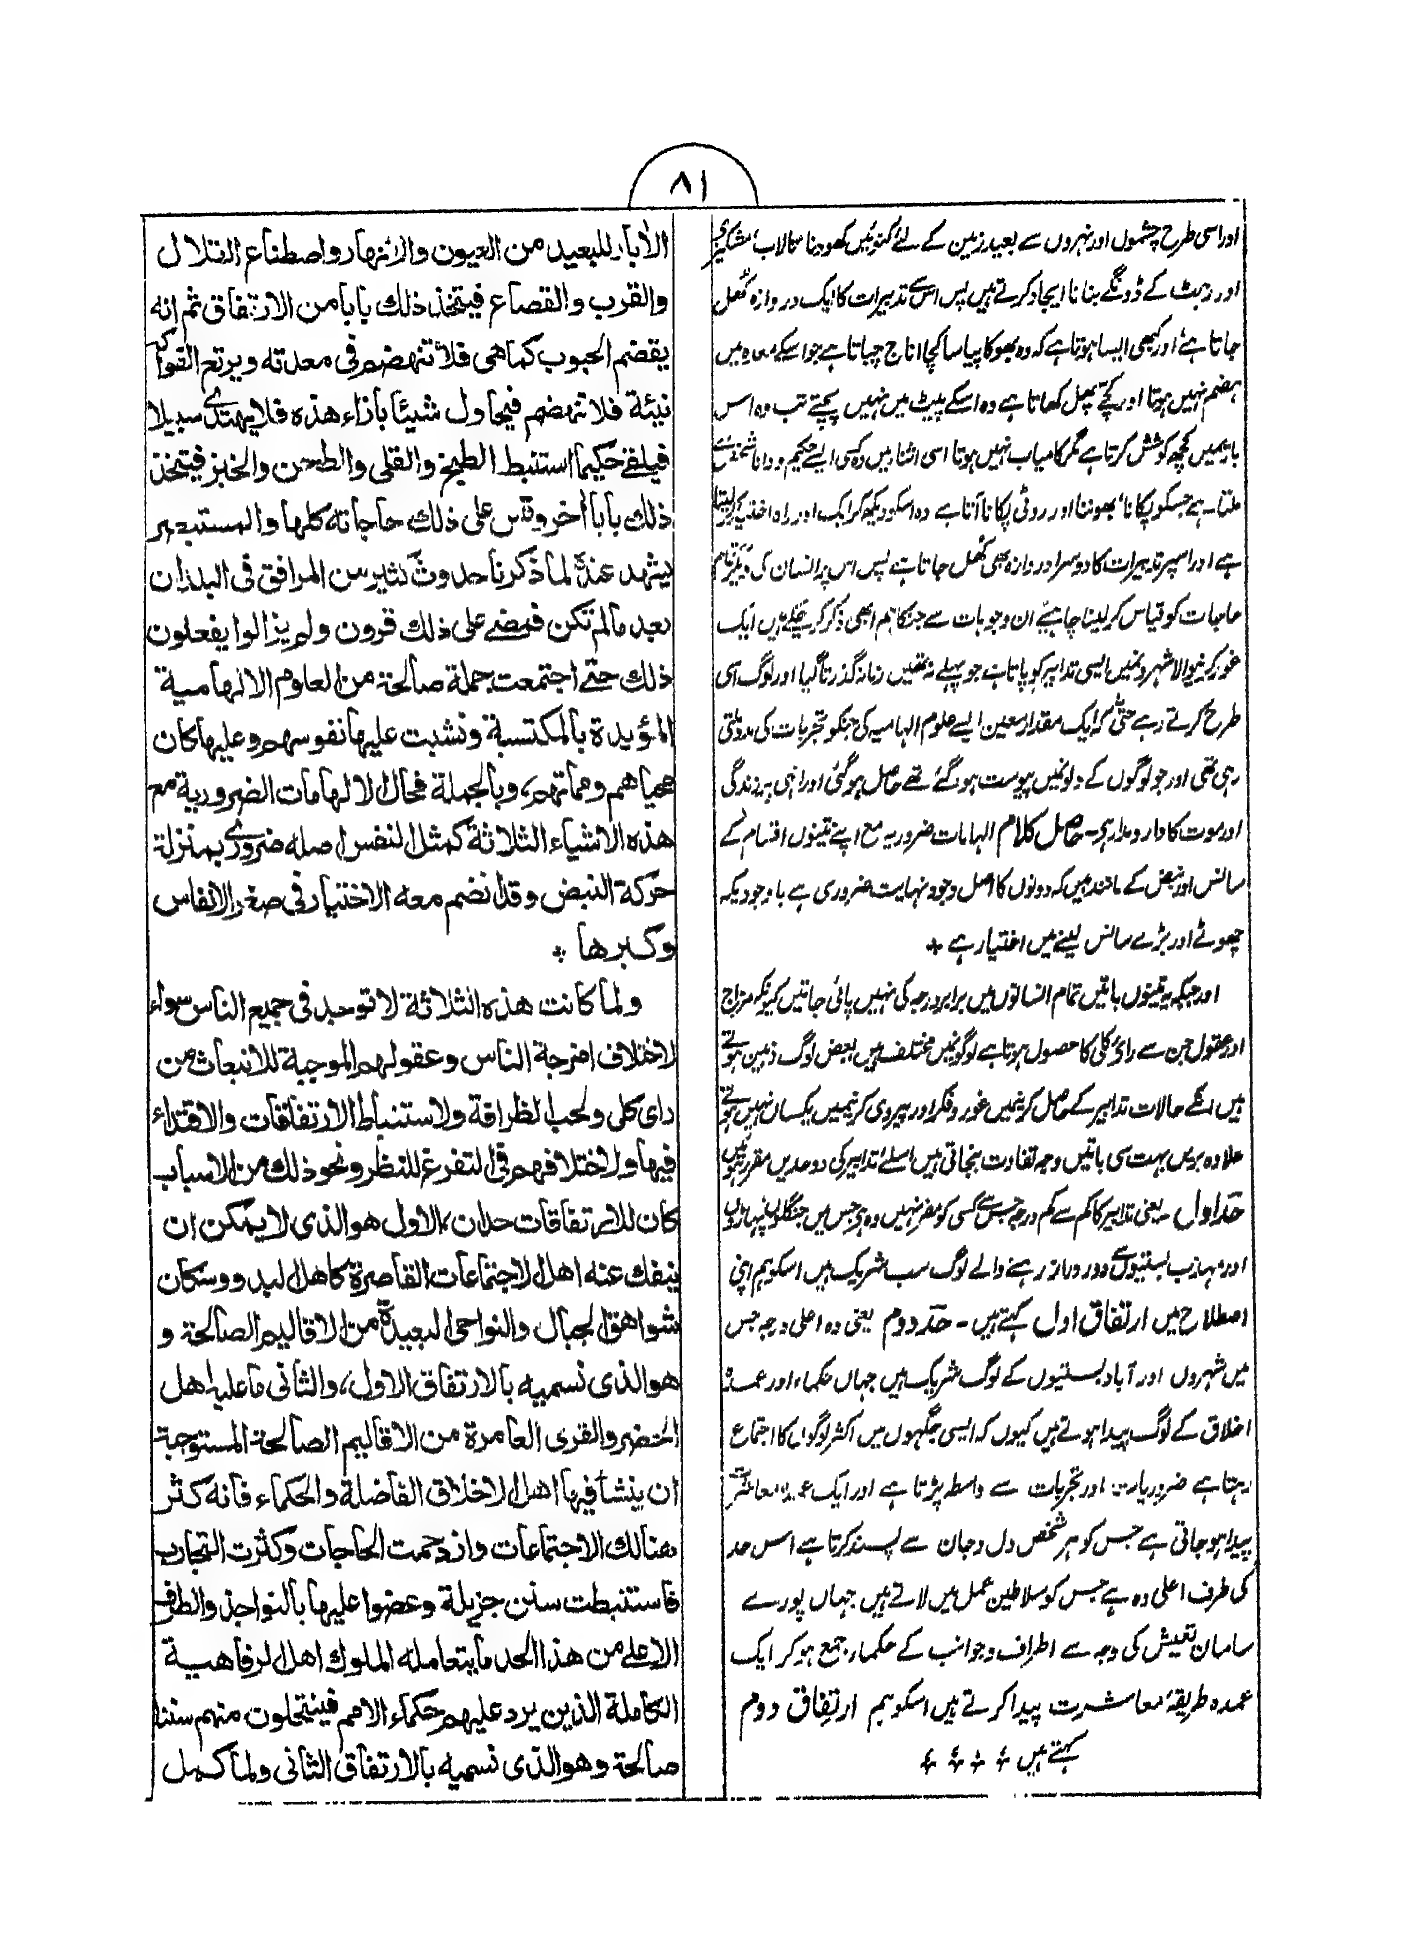 ۸۱
اور اسی طرح چشموں اور نہروں سے بعید زمین کے لئے کنوئیں کھودنا تالاب،
اور رہٹ کے ڈونگے بنانا ایجاد کرتے ہیں پس اس سے تدبیرات کا ایک دروازہ کھل
جاتا ہے اور کبھی ایسا ہوتا ہے کہ وہ بھوکا پیاسا کچا اناج چباتا ہے جو اسکے معدہ میں
ہضم نہیں ہوتا اور کچے پھل کھاتا ہے وہ اسکے پیٹ میں نہیں پچتے تب وہ اس
بابمیں کچھ کوشش کرتا ہے مگر کامیاب نہیں ہوتا اسی اثنا میں وہ کسی ایسے حکیم و دانا شخص سے
ملتا ہے جسکو پکانا، بھوننا اور روٹی پکانا آتا ہے وہ اسکو دیکھکر ایک اور راہ اخذ کر لیتا
ہے اور اسپر تدبیرات کا دوسرا دروازہ بھی کھل جاتا ہے پس اس پر انسان کی دیگر تمام
حاجات کو قیاس کر لینا چاہیے ان وجوہات سے جنکا ہم ابھی ذکر کر چکے ہیں ایک
غور کرنیوالا شہرونمیں ایسی تدابیر کو پاتا ہے جو پہلے نہ تھیں زمانہ گذرتا گیا اور لوگ اسی
طرح کرتے رہے حتٰی کہ ایک مقدار معین ایسے علوم الہامیہ کی جنکو تجربات کی مدد ملتی
رہی تھی اور جو لوگوں کے دلونمیں پیوست ہو گئے تھے حاصل ہو گئی اور انہی پر زندگی
اور موت کا دار و مدار رہا۔ حاصل کلام الہامات ضروریہ مع اپنے تینوں اقسام کے
سانس اور نبض کے مانند ہیں کہ دونوں کا اصل وجود نہایت ضروری ہے باوجودیکہ
چھوٹے اور بڑے سانس لینے میں اختیار ہے ٭
اور جبکہ یہ تینوں باتیں تمام انسانوں میں برابر درجہ کی نہیں پائی جاتیں کیونکہ مزاج
اور عقول جن سے رائے کلی کا حصول ہوتا ہے لوگونمیں مختلف ہیں بعض لوگ ذہین ہوتے
ہیں انکے حالات تدابیر کے حاصل کرنیمیں غور و فکر اور پیروی کرنیمیں یکساں نہیں ہوتے
علاوہ بریں بہت سی باتیں وجہ تفاوت بنجاتی ہیں اسلئے تدابیر کی دو حدیں مقرر ہوئیں
حد اول۔ یعنی تدابیر کا کم سے کم درجہ جس سے کسی کو مفر نہیں وہ ہی جس میں جنگلوں پہاڑوں
اور مہذب بستیوں سے دور دراز رہنے والے لوگ سب شریک ہیں اسکو ہم اپنی
اصطلاح میں ارتفاق اول کہتے ہیں۔ حد دوم یعنی وہ اعلی درجہ جس
میں شہروں اور آباد بستیوں کے لوگ شریک ہیں جہاں حکماء اور عمدہ
اخلاق کے لوگ پیدا ہوتے ہیں کیوں کہ ایسی جگہوں میں اکثر لوگوں کا اجتماع
رہتا ہے ضروریات اور تجربات سے واسطہ پڑتا ہے اور ایک عمدہ معاشرت
پیدا ہو جاتی ہے جس کو ہر شخص دل و جان سے پسند کرتا ہے اس حد
کی طرف اعلی وہ ہے جس کو سلاطین عمل میں لاتے ہیں جہاں پورے
سامان تعیش کی وجہ سے اطراف و جوانب کے حکماء جمع ہو کر ایک
عمدہ طریقۂ معاشرت پیدا کرتے ہیں اسکو ہم ارتفاق دوم
کہتے ہیں ٭ ٭ ٭ ٭
الآبار للبعيد من العيون والانهار واصطناع القلال
والقرب والقصاع فيتخذ ذلك بابا من الارتفاق ثم انه
يقضم الحبوب كما هي فلا تنهضم في معدته ويرتع الفواكه
نيئة فلا تنهضم فيحاول شيئا بازاء هذه فلا يهتدي سبيلا
فيلقى حكيما استنبط الطبخ والقلي والطحن والخبز فيتخذ
ذلك بابا اخر وقس على ذلك حاجاته كلها والمستبصر
يشهد عنده لما ذكرنا حدوث كثير من المرافق في البلدان
بعد مالم تكن فمضى على ذلك قرون ولم يزالوا يفعلون
ذلك حتى اجتمعت جملة صالحة من العلوم الالهامية
المؤيدة بالمكتسبة ونشبت عليها نفوسهم وعليها كان
محياهم ومماتهم، وبالجملة فحال الالهامات الضرورية مع
هذه الاشياء الثلاثة كمثل النفس اصله ضروري بمنزلة
حركة النبض وقد انضم معه الاختيار في صغر الانفاس
وكبرها ٭
ولما كانت هذه الثلاثة لا توجد في جميع الناس سواء
لاختلاف امزجة الناس وعقولهم الموجبة للانبعاث من
راى كلى ولحب الظرافة ولاستنباط الارتفاقات والاقتداء
فيها ولاختلافهم في التفرغ للنظر ونحو ذلك من الاسباب
كان للارتفاقات حدان، الاول هو الذي لا يمكن ان
ينفك عنه اهل الاجتماعات القاصرة كاهل البدو وسكان
شواهق الجبال والنواحي البعيدة من الاقاليم الصالحة و
هو الذي نسميه بالارتفاق الاول، والثاني ما عليه اهل
الحضر والقرى العامرة من الاقاليم الصالحة المستوجبة
ان ينشأ فيها اهل الاخلاق الفاضلة والحكماء فانه كثر
هنالك الاجتماعات وازدحمت الحاجات وكثرت التجارب
فاستنبطت سنن جزيلة وعضوا عليها بالنواجذ والطرف
الاعلى من هذا الحد ما يتعامله الملوك اهل الرفاهية
الكاملة الذين يرد عليهم حكماء الامم فينتحلون منهم سننا
صالحة وهو الذي نسميه بالارتفاق الثاني ولما كمل